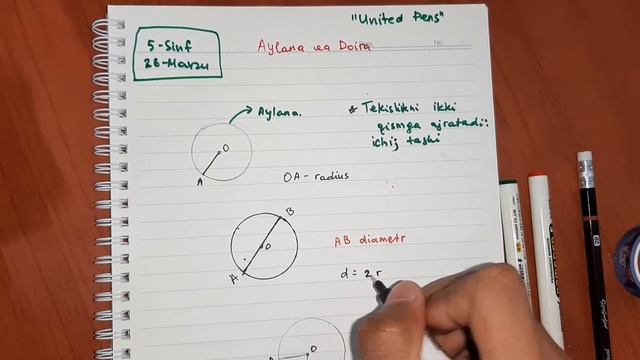 "United Pens"
5-Sinf
26-Martu
Aylana va Doira
No
Aylana.
* Tekislikni ikki
qismga ajratadi:
ichij tashi
O
A
OA - radius
B
O
A
AB diametr
d = 2 r
O